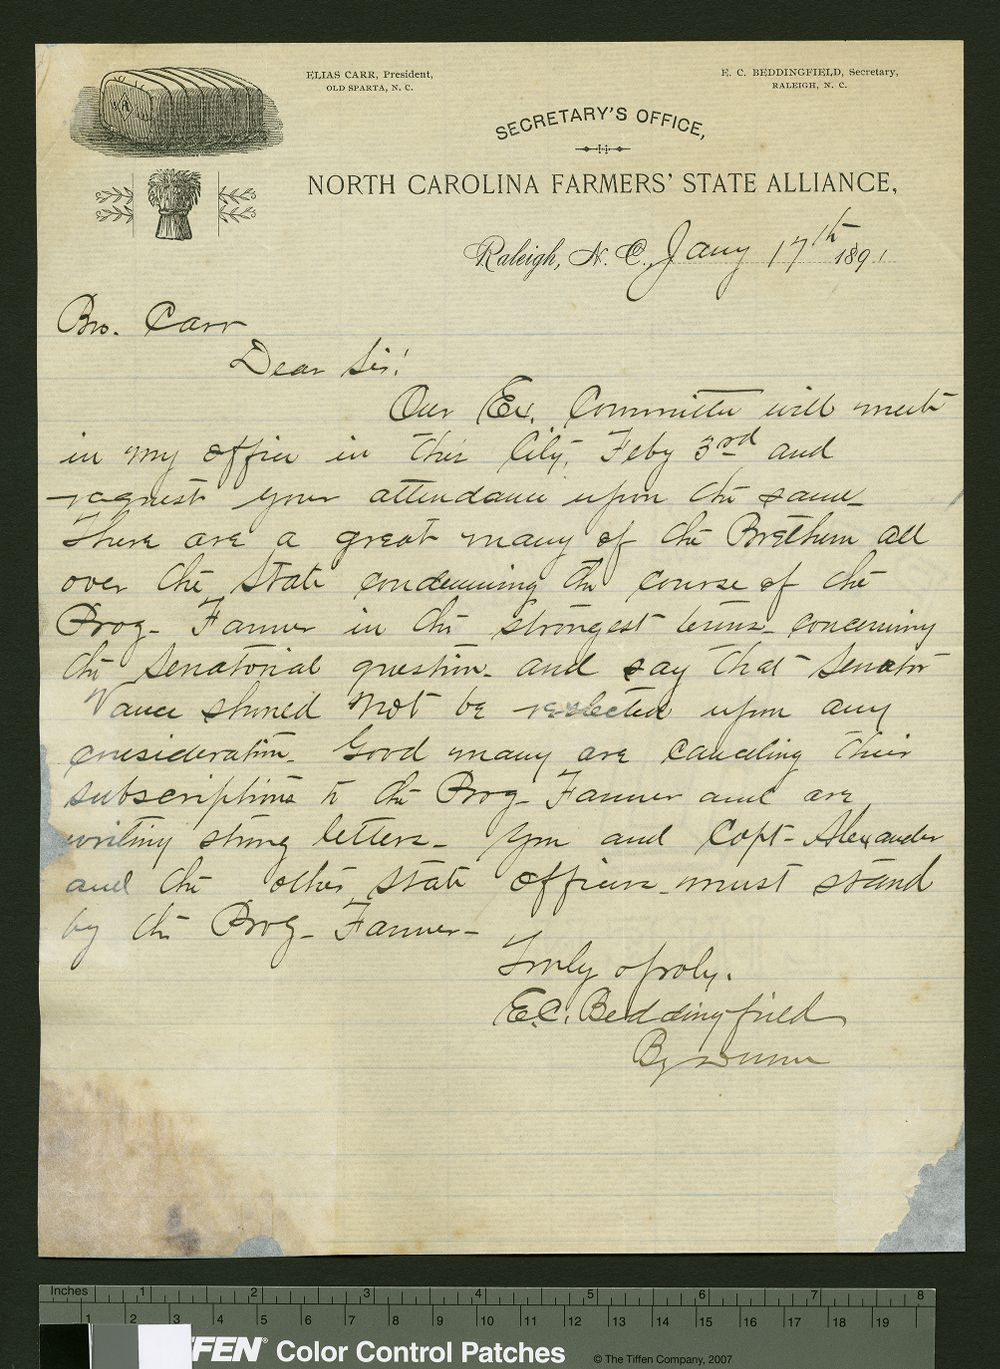 ELIAS CARR, President,
OLD SPARTA, N. C.
E. C. BEDDINGFIELD, Secretary,
RALEIGH, N. C.
SECRETARY'S OFFICE,
NORTH CAROLINA FARMERS' STATE ALLIANCE,
Raleigh, N. C., Jany 17th 1891
Bro. Carr
Dear Sir!
Our Ex. Committee will meet
in my office in this City, Feby 3rd and
request your attendance upon the same_
There are a great many of the Brethern all
over the State condemning the course of the
Prog- Farmer in the strongest terms_ concerning
the Senatorial question_ and say that Senator
Vance should not be reelected upon any
consideration_ Good many are canceling their
subscriptions to the Prog- Farmer and are
writing strong letters_ You and Capt- Alexander
and the other State officers_ must stand
by the Prog- Farmer-
Truly & froly.
E.C. Beddingfield
By
Inches 1 2 3 4 5 6 7 8
1 2 5 6 7 8 9 10 11 12 13 14 15 16 17 18 19
FFEN® Color Control Patches © The Tiffen Company, 2007